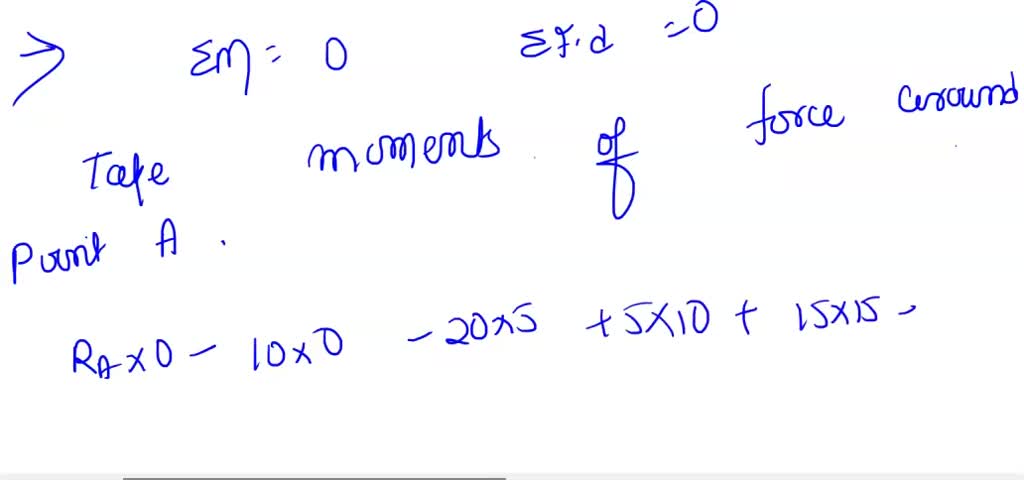 ⇒ ΣM = 0 ΣF.d = 0
Take moments of force around
Point A.
RA×0 - 10×0 - 20×5 + 5×10 + 15×15 -